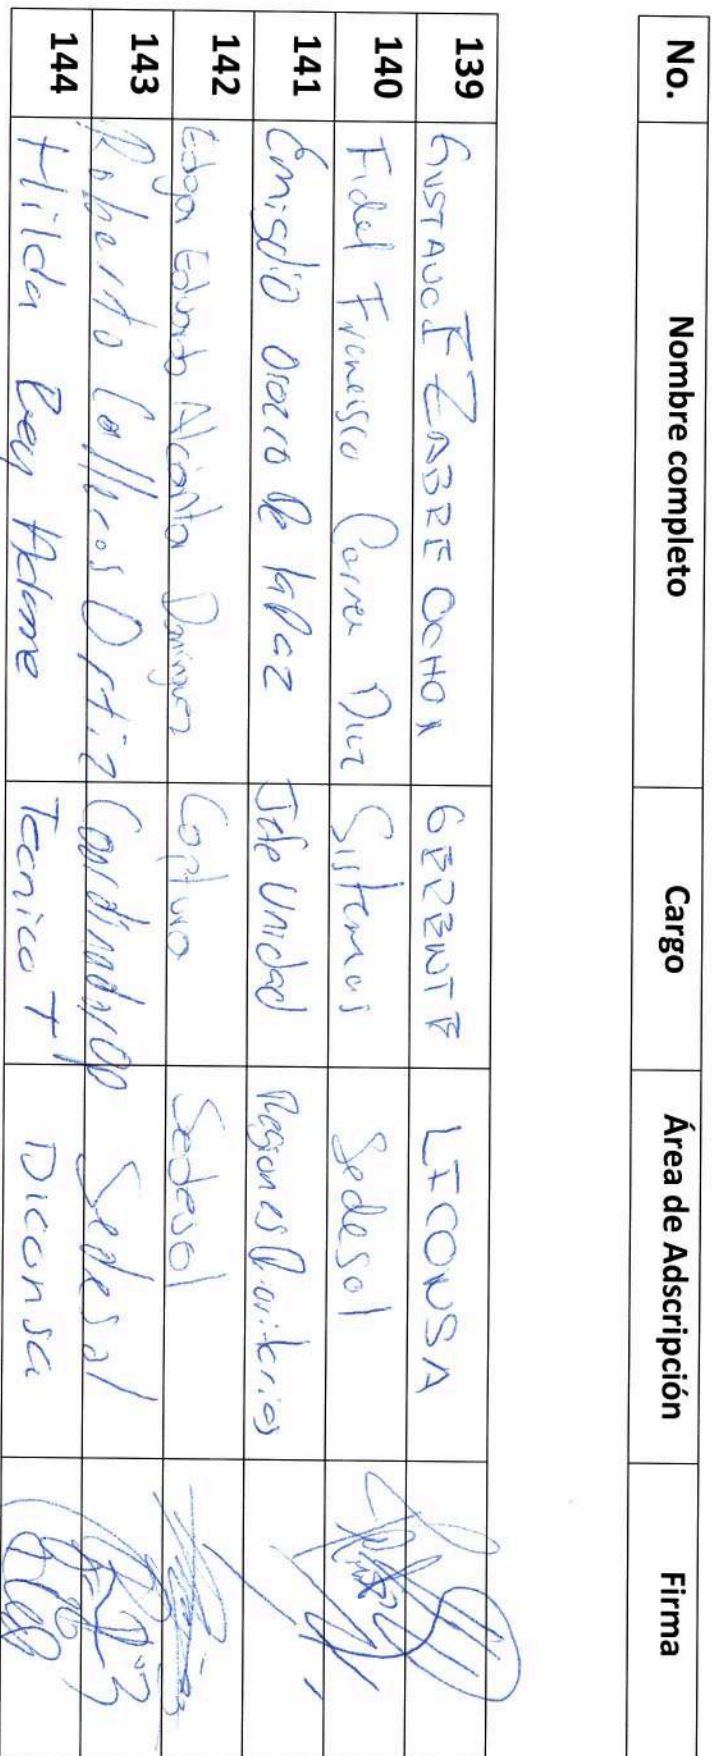 No. Nombre completo Cargo Área de Adscripción Firma
139 GUSTAVO I ZABRE OCHOA GERENTE LICONSA
140 Fidel Francisco Correa Diaz Sistemas Sedesol
141 Emigdio Orozco De la Paz Jefe Unidad Regiones Prioritarias
142 Edgar Eduardo Alcántar Dominguez Captura Sedesol
143 Roberto Ortiz Sedesol
144 Hilda Adame Tecnico T Diconsa